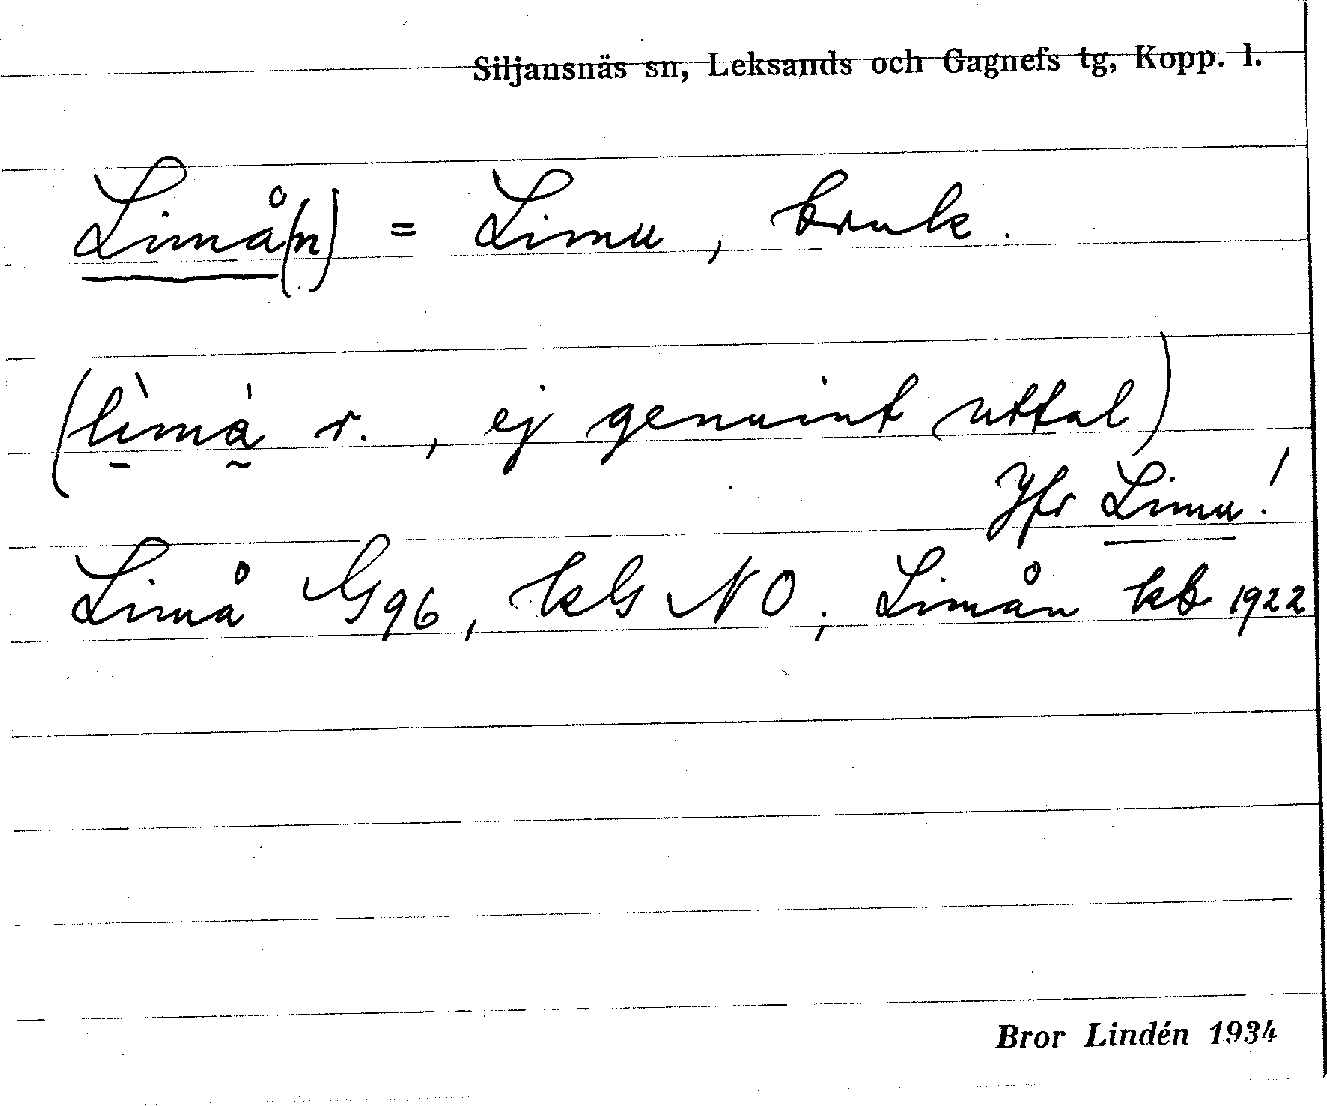 Siljansnäs sn, Leksands och Gagnefs tg, Kopp. l.
Limå(n) = Limu, bruk.
(lìmá r., ej genuint uttal)
Jfr Limu!
Limå G96, kbl NO; Limån kb 1922
Bror Lindén 1934